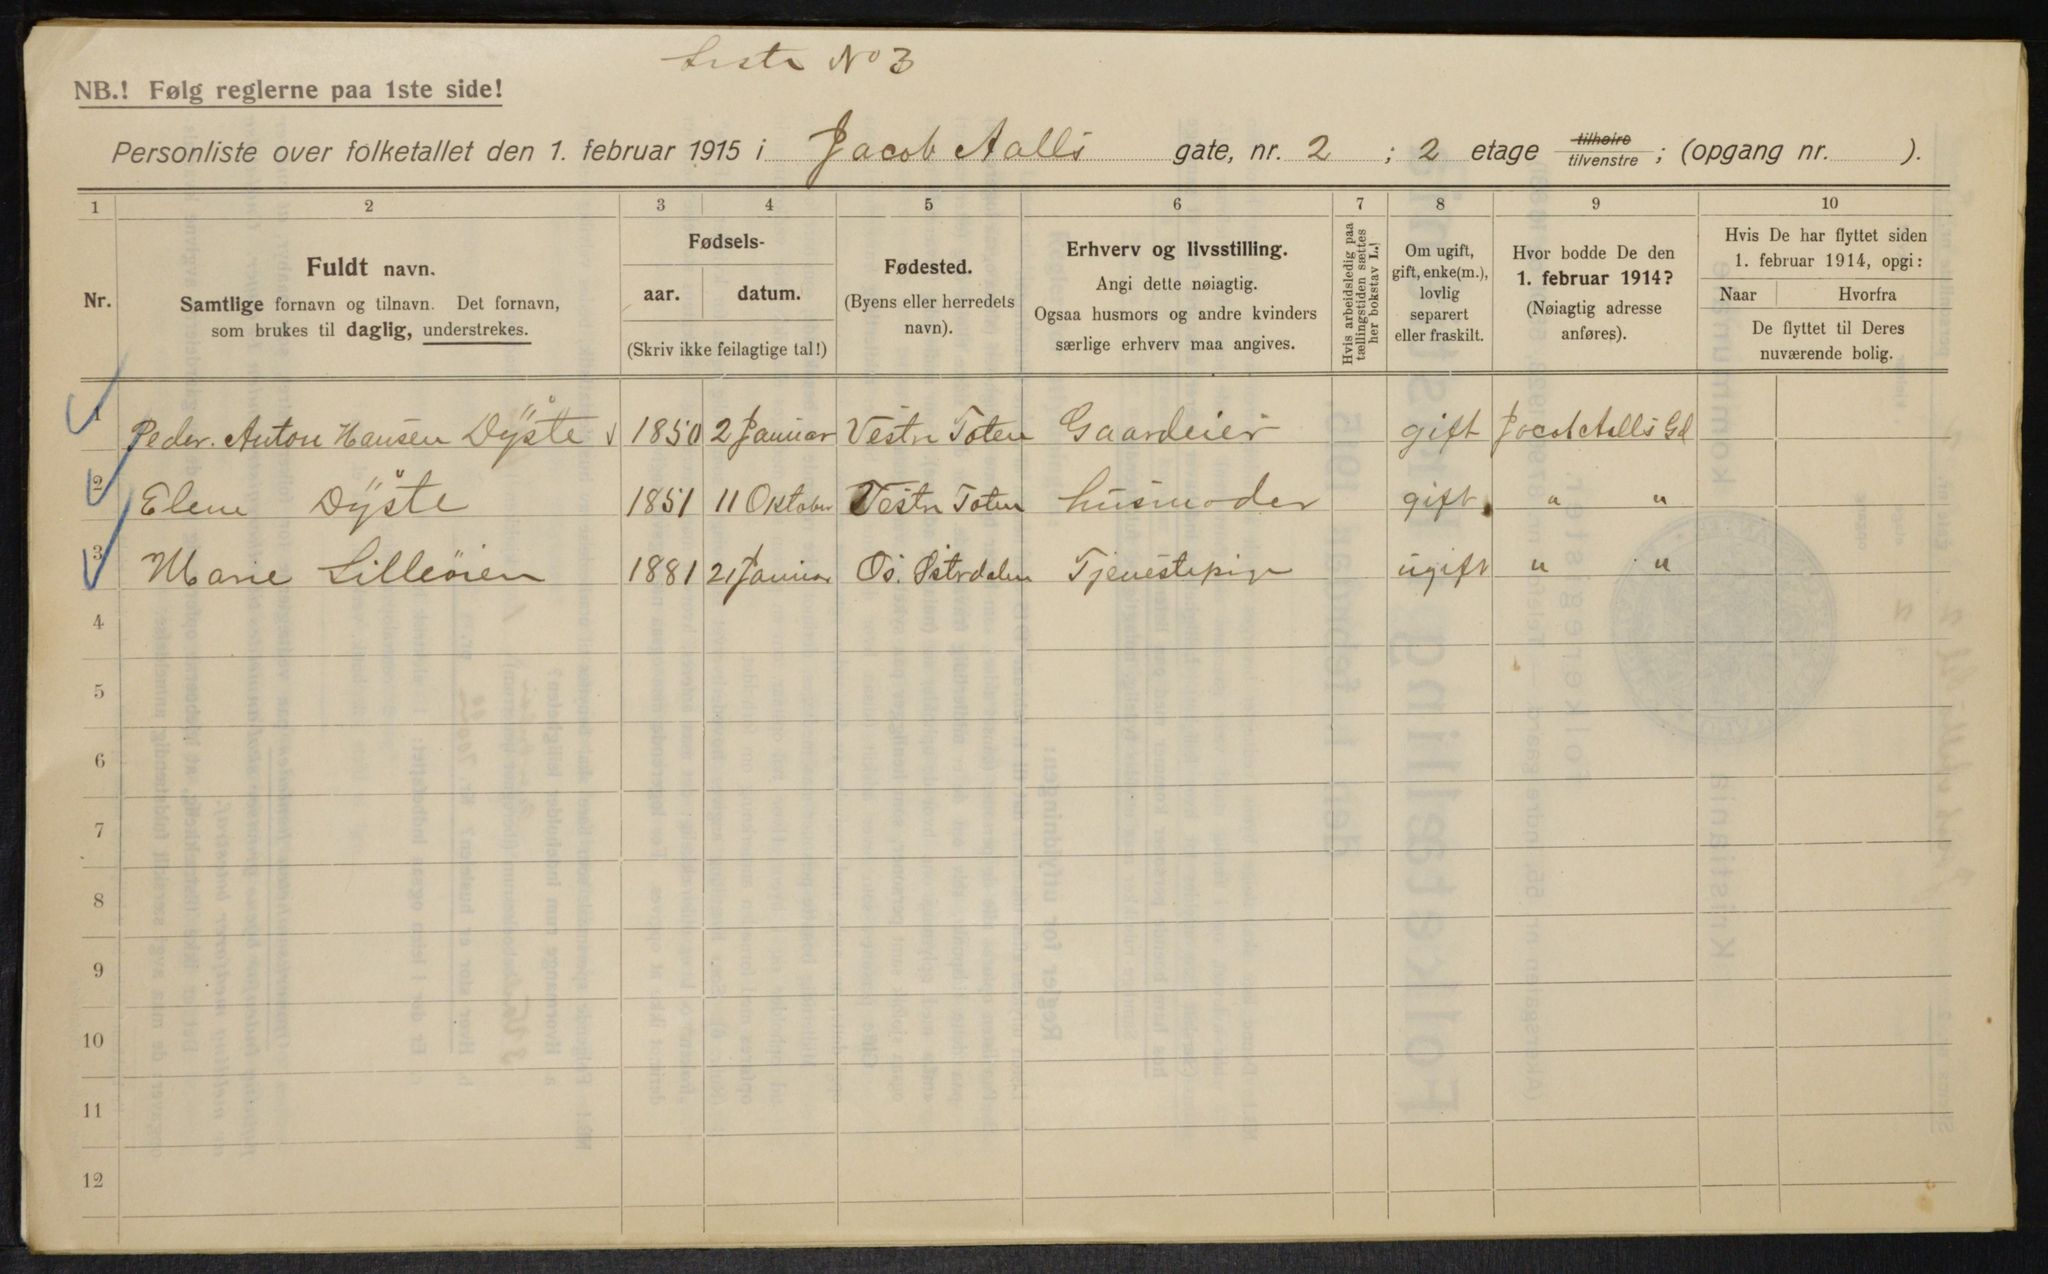 Liste No 3
NB.! Følg reglerne paa 1ste side!
Personliste over folketallet den 1. februar 1915 i Jacob Aalls gate, nr. 2 ; 2 etage tilhøire / tilvenstre ; (opgang nr. ).
1 2 3 4 5 6 7 8 9 10
Nr.
Fuldt navn.
Samtlige fornavn og tilnavn. Det fornavn,
som brukes til daglig, understrekes.
Fødsels-
aar. datum.
(Skriv ikke feilagtige tal!)
Fødested.
(Byens eller herredets
navn).
Erhverv og livsstilling.
Angi dette nøiagtig.
Ogsaa husmors og andre kvinders
særlige erhverv maa angives.
Hvis arbeidsledig paa
tællingstiden sættes
her bokstav L.!
Om ugift,
gift, enke(m.),
lovlig
separert
eller fraskilt.
Hvor bodde De den
1. februar 1914?
(Nøiagtig adresse
anføres).
Hvis De har flyttet siden
1. februar 1914, opgi:
Naar Hvorfra
De flyttet til Deres
nuværende bolig.
1 Peder. Anton Hansen Dyste 1850 2 Januar Vestre Toten Gaardeier gift Jacob Aalls Gd
2 Elene Dyste 1851 11 Oktober Vestre Toten husmoder gift " "
3 Marie Lilleøien 1881 21 Januar Østrdalen Tjenestepige ugift " "
4
5
6
7
8
9
10
11
12